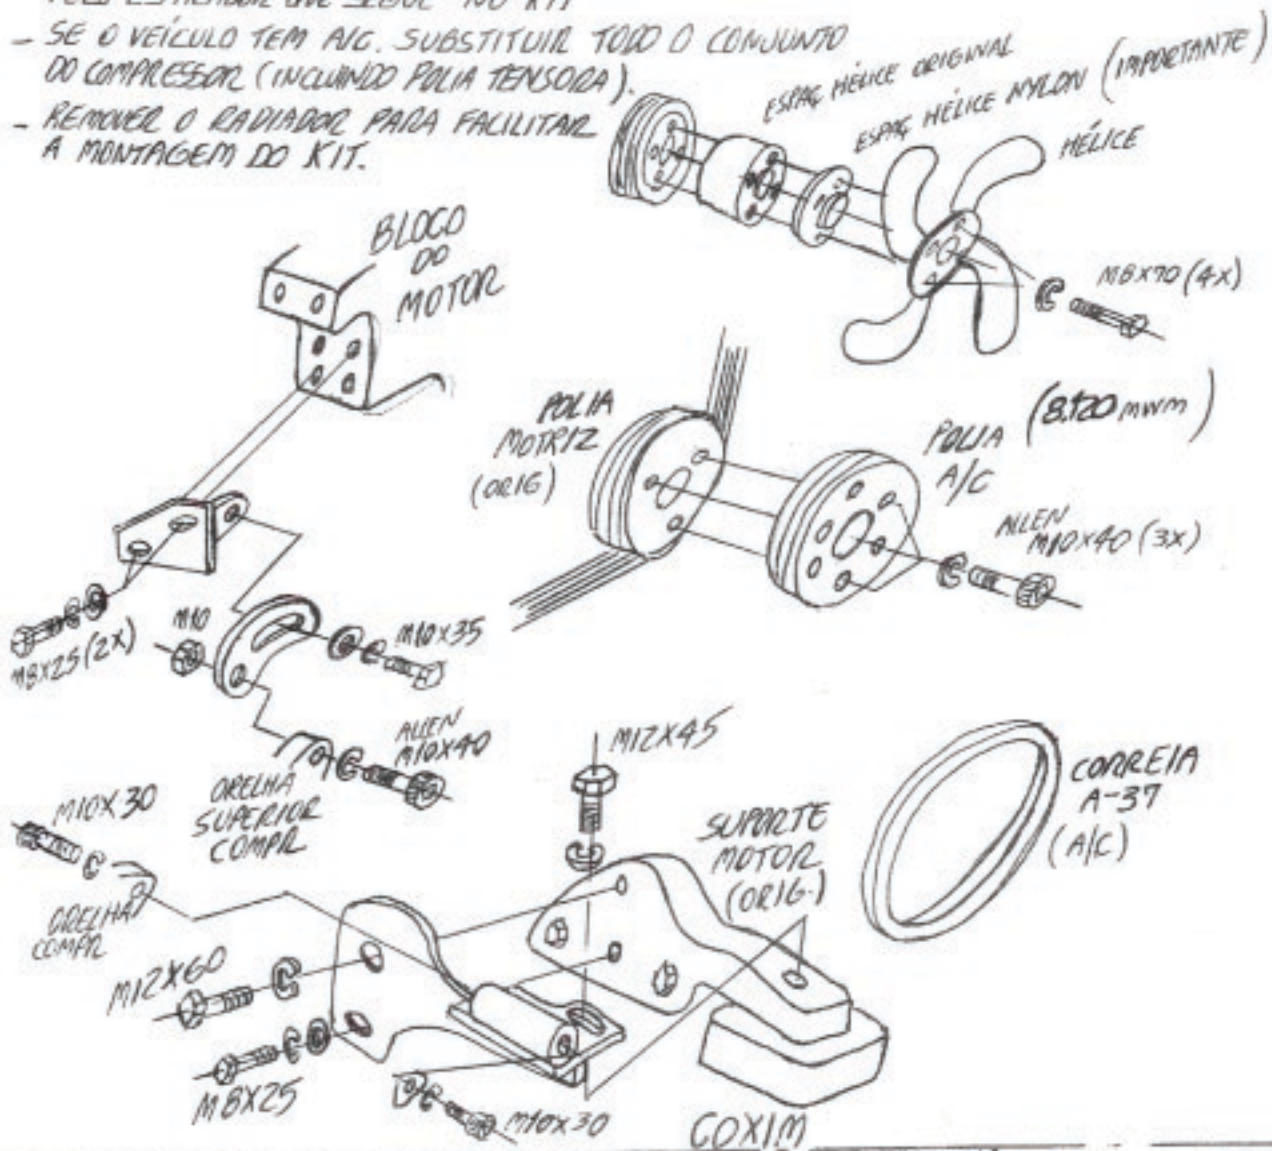 QUE SEGUE NO KIT
- SE O VEÍCULO TEM A/C. SUBSTITUIR TODO O CONJUNTO
DO COMPRESSOR (INCLUINDO POLIA TENSORA).
- REMOVER O RADIADOR PARA FACILITAR
A MONTAGEM DO KIT.
ESPAÇ HÉLICE ORIGINAL
ESPAÇ HÉLICE NYLON (IMPORTANTE)
HÉLICE
M8X70 (4X)
BLOCO
DO
MOTOR
POLIA
MOTRIZ
(ORIG)
POLIA
A/C
(8.120 MWM)
ALLEN
M10X40 (3X)
M8X25 (2X)
M10
M10X35
ALLEN
M10X40
ORELHA
SUPERIOR
COMPR
M12X45
SUPORTE
MOTOR
(ORIG.)
CORREIA
A-37
(A/C)
M10X30
ORELHA
COMPR
M12X60
M8X25
M10X30
COXIM